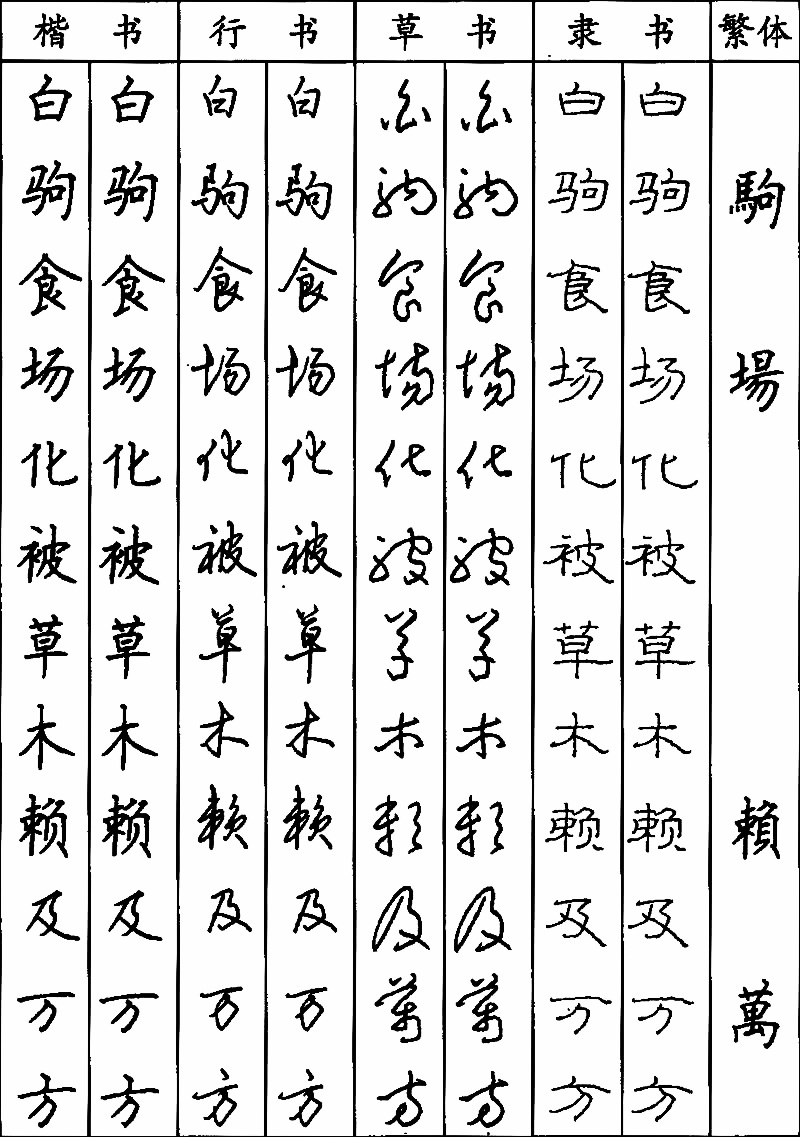 楷书 行书 草书 隶书 繁体
白 白 白 白 白 白 白 白
驹 驹 驹 驹 驹 驹 驹 驹 駒
食 食 食 食 食 食 食 食
场 场 场 场 场 场 场 场 場
化 化 化 化 化 化 化 化
被 被 被 被 被 被 被 被
草 草 草 草 草 草 草 草
木 木 木 木 木 木 木 木
赖 赖 赖 赖 赖 赖 赖 赖 賴
及 及 及 及 及 及 及 及
万 万 万 万 萬 萬 万 万 萬
方 方 方 方 方 方 方 方